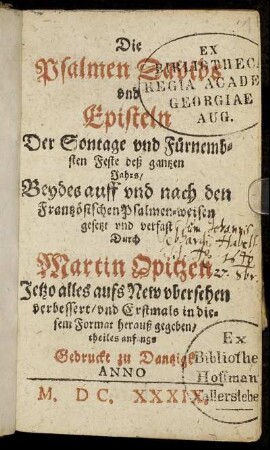 Die
Psalmen Davids
vnd
Episteln
Der Sontage vnd Fürnemb-
sten Feste deß gantzen
Jahrs/
Beydes auff vnd nach den
Frantzösischen Psalmen-weisen
gesetzt vnd verfast
Durch
Martin Opitzen
Jetzo alles auffs New vbersehen
verbessert/ vnd Erstmals in die-
sem Format herauß gegeben/
theiles anfangs
Gedruckt zu Dantzigk
ANNO
M. DC. XXXIX.
EX
BIBLIOTHECA
REGIA ACADE
GEORGIAE
AUG.
Ex
Bibliothe
Hoffman
Fallerslebe